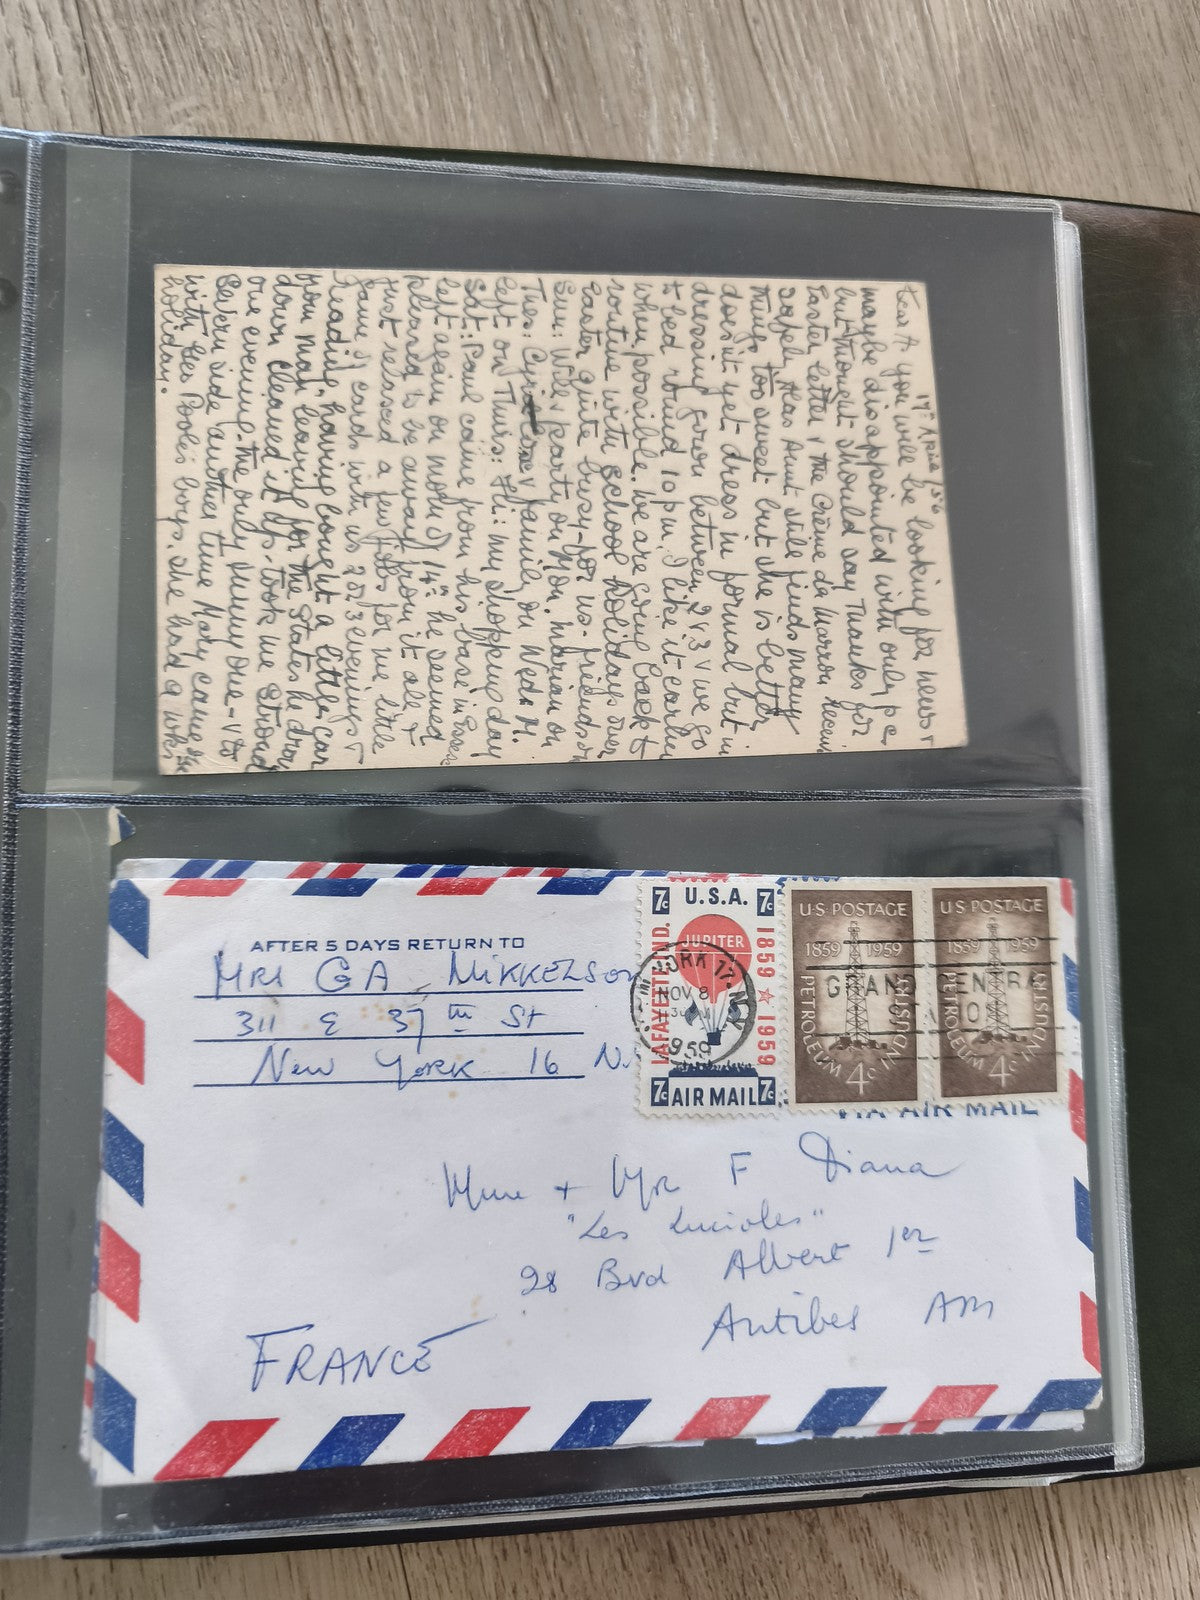 17th April '56
Dear A you will be looking for news &
maybe disappointed with only p c
but thought should say Thanks for
Easter letter & the Crème da Marron
safely. Alas Aunt still finds many
things too sweet but she is better,
doesn't yet dress in formal but in
dressing gown between 2 & 3 & we go
to bed round 10 pm. I like it earlier
when possible. We are going back to
routine with School holidays over
Easter quite busy - for us. friends on
Sun: Will & party on Mon. Marian on
Tues: & family on Weds M.
left on Thurs: Fri: my shopping day
Sat: Paul came from his base in Essex
left again on Mon 14th he seemed
pleased to be away from it all &
just relaxed a few jobs for me little
game of cards with us 2 or 3 evenings &
reading, having bought a little car
from man leaving for the States he drove
down cleaned it up - took me Strood
one evening - the only sunny one - & to
side another time Mary came
with her Pooles boys. She had a wks
holiday.
AFTER 5 DAYS RETURN TO
MRS G A MIKKELSON
311 E 37th St
New York 16 N.
7c U.S.A. 7c
LAFAYETTE IND.
JUPITER
1859 ★ 1959
7c AIR MAIL 7c
NEW YORK 17 N.Y.
NOV 8
1959
GRAND CENTRAL
U.S. POSTAGE
1859 1959
PETROLEUM INDUSTRY
4c
U.S. POSTAGE
1859 1959
PETROLEUM INDUSTRY
4c
VIA AIR MAIL
Mme + Mr F Diana
"Les Lucioles"
28 Bvd Albert 1er
Antibes AM
FRANCE